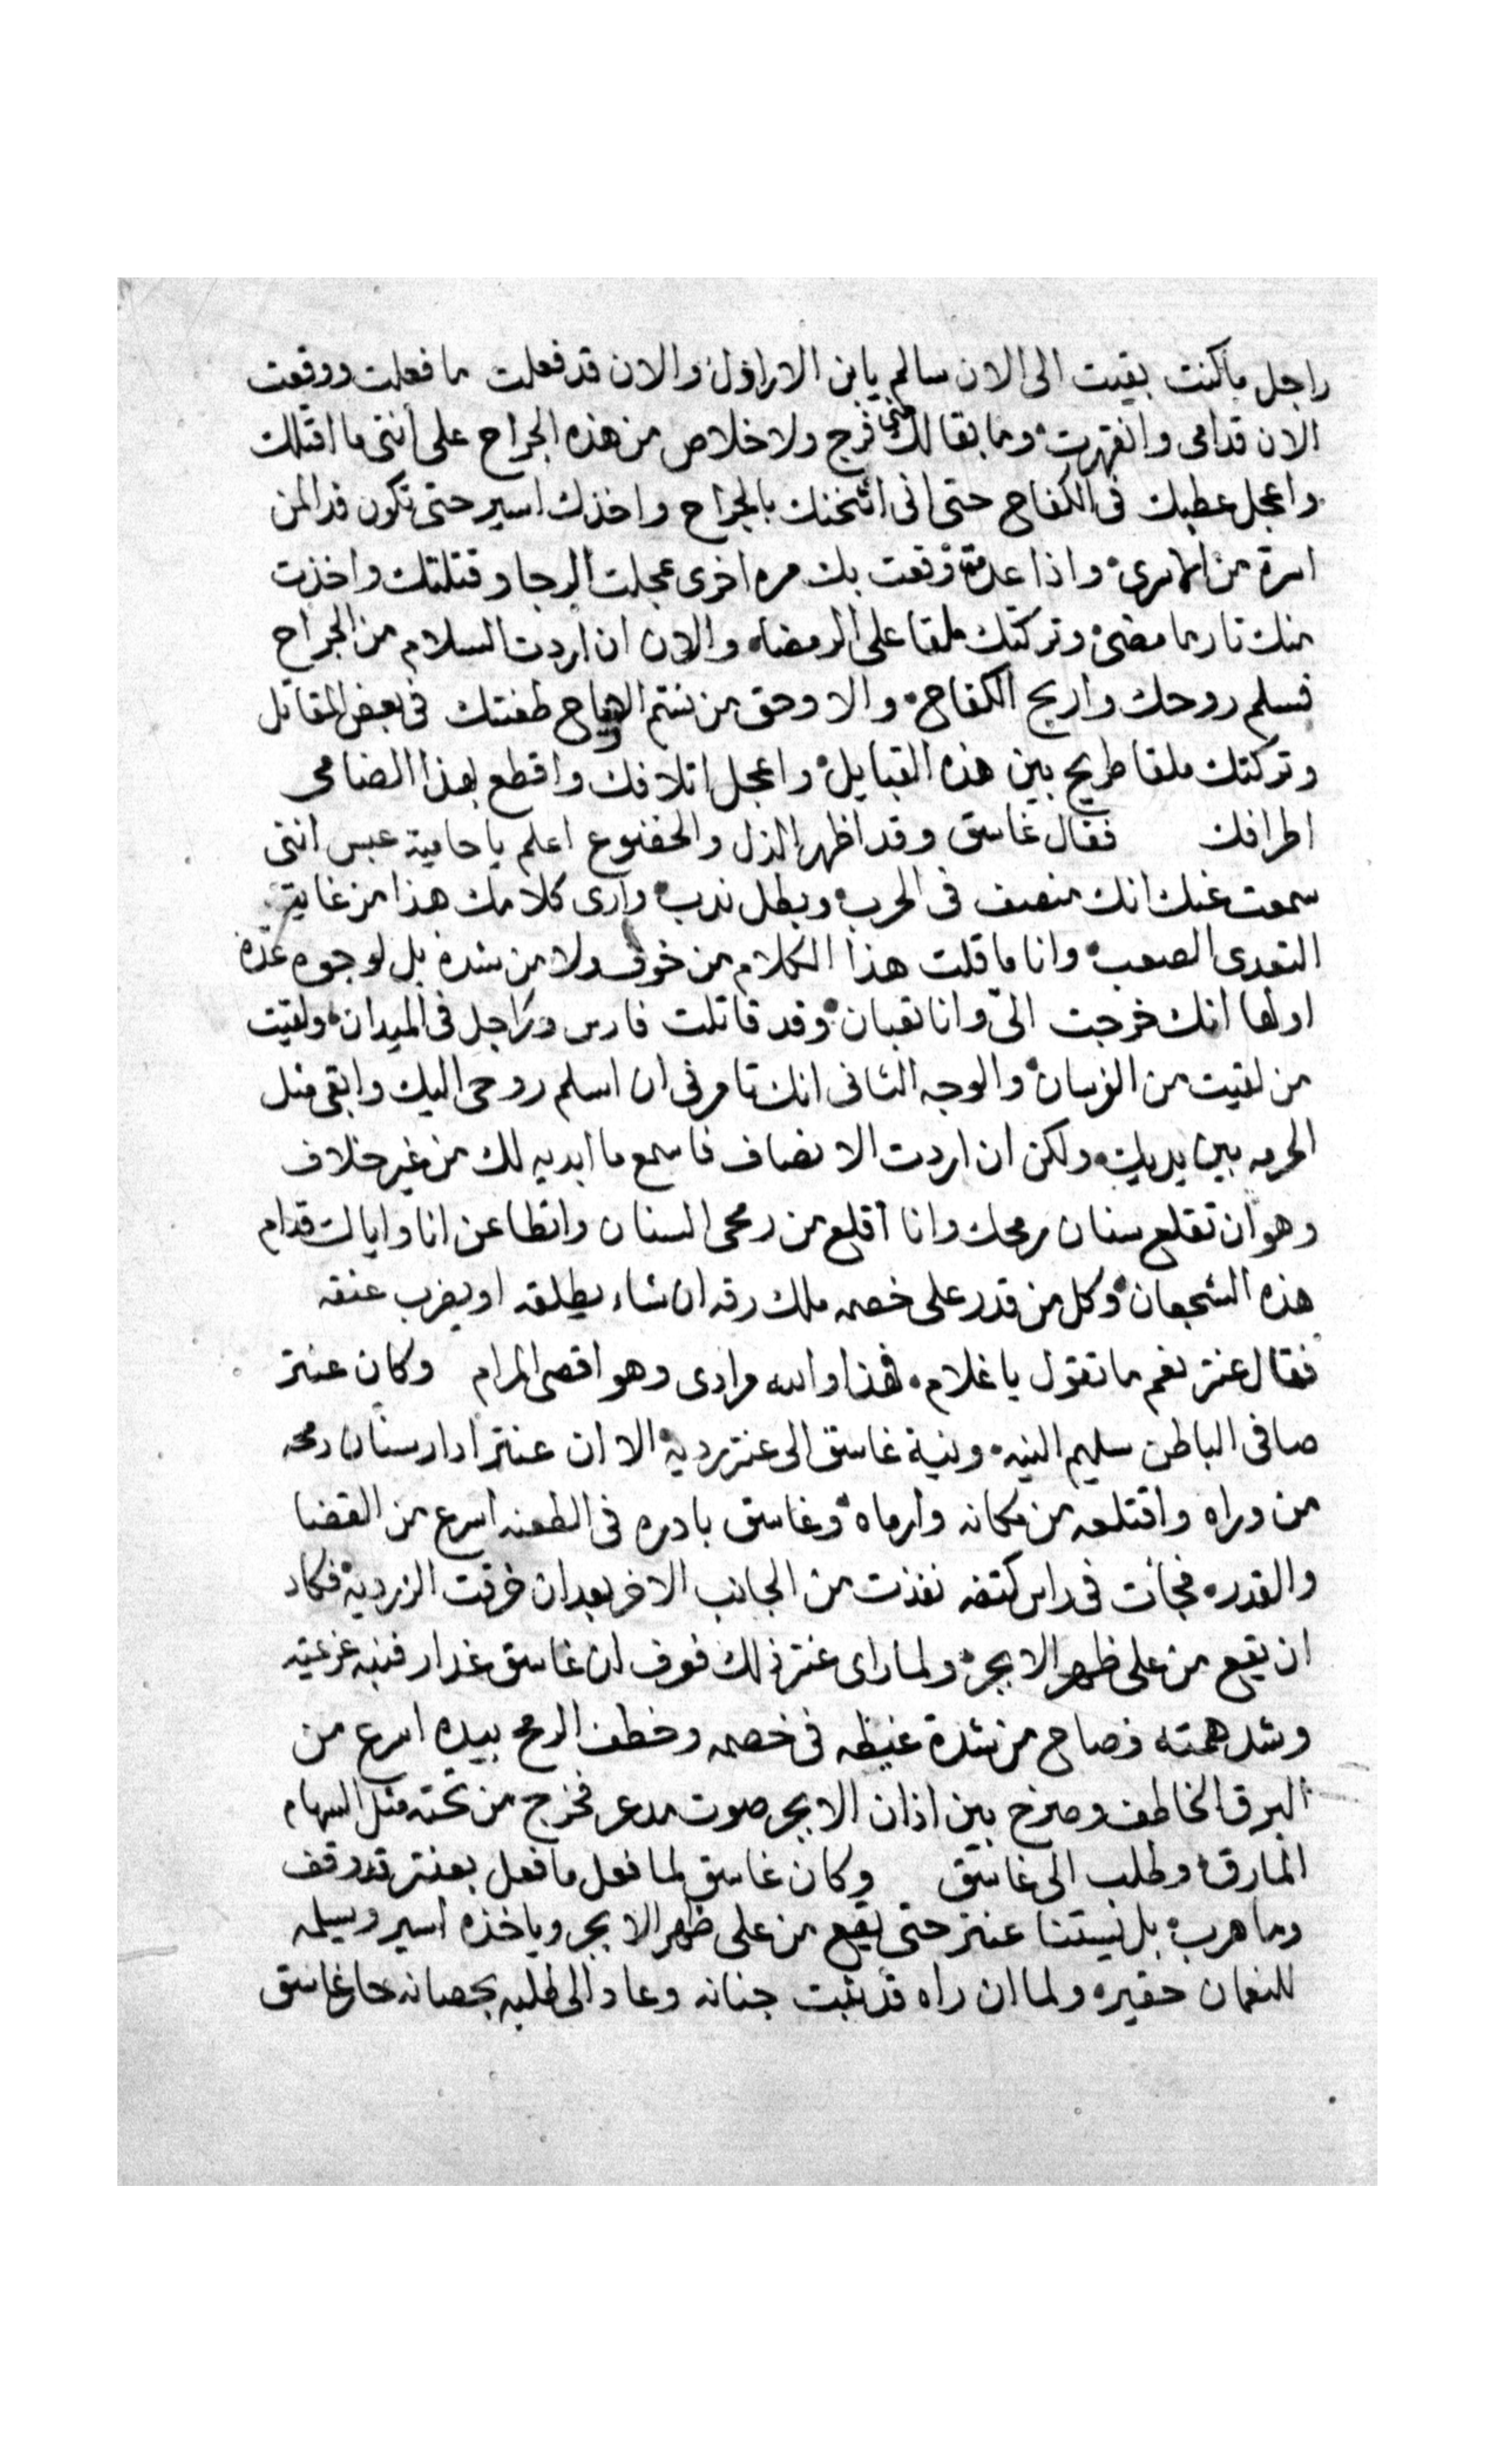 راجل ما كنت بقيت الى الان سالم يابن الاراذل والان قد فعلت ما فعلت ووقعت
الان قدامى وانقهرت وما بقا لك منى فرج ولا خلاص من هذه الجراح على أننى ما اقتلك
واعجل عطبك فى الكفاح حتى انى اثخنك بالجراح واخذك اسير حتى تكون فدا لمن
اسرة من واذا عدت وقعت بك مره اخرى عجلت وقتلتك واخذت
منك تار ما مضى وتركتك ملقا على الرمضاء والان ان اردت السلام من الجراح
فسلم روحك واربح الكفاح والا وحق من طعنتك فى بعض المقاتل
وتركتك ملقا طريح بين هذه القبايل واعجل اتلافك واقطع بهذا الضامى
اطرافك فقال غاسق وقد اظهر الذل والخضوع اعلم يا حامية عبس اننى
سمعت عنك انك منصف فى الحرب وبطل ندب وارى كلامك هذا من غاية
التعدى الصعب وانا ما قلت هذا الكلام من خوف ولا من شدة بل لوجوه عدّة
اولها انك خرجت الىّ وانا تعبان وقد قاتلت فارس وراجل فى الميدان ولقيت
من لقيت من الفرسان والوجه الثانى انك تامرنى ان اسلم روحى اليك وابقى مثل
الحرمه بين يديك ولكن ان اردت الانصاف فاسمع ما ابديه لك من غير خلاف
وهو ان تقلع سنان رمحك وانا أقلع من رمحى السنان واتطاعن انا واياك قدام
هذه الشجعان وكل من قدر على خصمه ملك رقه ان شاء يطلقه او يضرب عنقه
فقال عنتر نعم ما تقول يا غلام فهذا والله مرادى وهو اقصى المرام وكان عنتر
صافى الباطن سليم النيه ونية غاسق الى عنتر رديه الا ان عنتر أدار سنان رمحه
من وراه واقتلعه من مكانه وارماه وغاسق بادره فى الطعنه اسرع من القضا
والقدر فجأت فى راس كتفه نفذت من الجانب الاخر بعد ان خرقت الزرديه فكاد
ان يقع من على ظهر الابجر ولما راى عنتر ذلك فعرف ان غاسق غدار فنبه عزمته
وشد همته وصاح من شدة غيظه فى خصمه وخطف الرمح بيده اسرع من
البرق الخاطف وصرخ بين اذان الابجر صوت مدعر فخرج من تحته مثل السهام
المارق وطلب الى غاسق وكان غاسق لما فعل ما فعل بعنتر قد وقف
وما هرب بل يستنا عنتر حتى يقع من على ظهر الابجر وياخذه اسير ويسلمه
للنعمان حقير ولما ان راه قد ثبت جنانه وعاد الى طلبه بحصانه حار غاسق